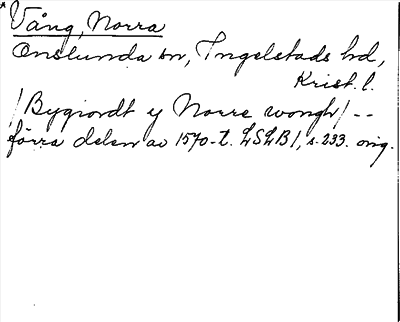 *Vång, Norra
Onslunda sn, Ingelstads hd,
Krist. l.
/Bygiordt y Norre wongh/--
förra delen av 1570-t. LSLB 1, s. 233. orig.